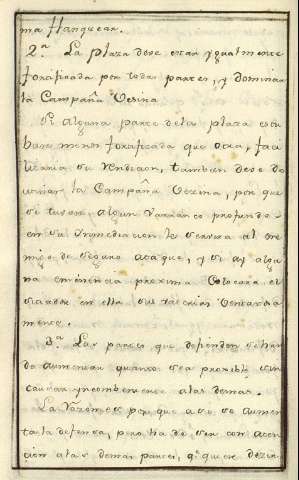 ma flanquear.
2.ª La plaza deve estar ygualmente
fortificada por todas partes, y dominar
la Campaña Vezina.
Si alguna parte dela plaza estu
biere menos fortificada que otra, faci
litaria su rendicion, tambien deve do
minar la Campaña Vezina, por que
si tuviere algun varranco profundo
en su ynmediacion le serviria al ene
migo de seguro ataque, y si ay algu
na eminencia proxima Colocará el
sitiador en ella sus vaterias ventaxosa
mente.
3.ª Las partes que defienden se han
de aumentar quanto sea posible sin
causar yncombeniente alas demas.
La razon es por que asi se aumen
ta la defensa, pero ha de ser con aten
cion alas demas partes, q.e quiere dezir